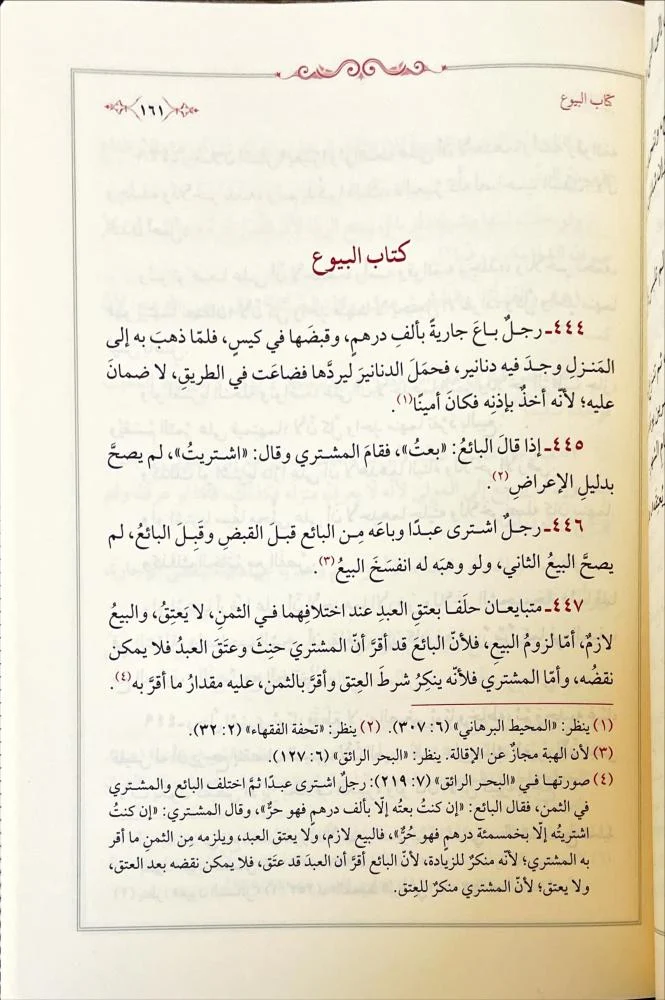 كتاب البيوع
١٦١
كتاب البيوع
٤٤٤ـ رجلٌ باعَ جاريةً بألفِ درهمٍ، وقبضَها في كيسٍ، فلمّا ذهبَ به إلى
المَنزلِ وجدَ فيه دنانير، فحمَلَ الدنانيرَ ليردَّها فضاعَت في الطريقِ، لا ضمانَ
عليه؛ لأنّه أخذٌ بإذنِه فكانَ أمينًا(١).
٤٤٥ـ إذا قالَ البائعُ: «بعتُ»، فقامَ المشتري وقال: «اشتريتُ»، لم يصحَّ
بدليلِ الإعراضِ(٢).
٤٤٦ـ رجلٌ اشترى عبدًا وباعَه مِن البائع قبلَ القبضِ وقَبِلَ البائعُ، لم
يصحَّ البيعُ الثاني، ولو وهبَه له انفسَخَ البيعُ(٣).
٤٤٧ـ متبايعان حلَفا بعتقِ العبدِ عند اختلافِهما في الثمنِ، لا يَعتِقُ، والبيعُ
لازمٌ، أمّا لزومُ البيعِ، فلأنّ البائعَ قد أقرَّ أنّ المشتريَ حنِثَ وعتَقَ العبدُ فلا يمكن
نقضُه، وأمّا المشتري فلأنّه ينكِرُ شرطَ العِتقِ وأقرَّ بالثمنِ، عليه مقدارُ ما أقرَّ به(٤).
(١) ينظر: «المحيط البرهاني» (٦: ٣٠٧). (٢) ينظر: «تحفة الفقهاء» (٢: ٣٢).
(٣) لأن الهبة مجازٌ عن الإقالة. ينظر: «البحر الرائق» (٦: ١٢٧).
(٤) صورتها في «البحر الرائق» (٧: ٢١٩): رجلٌ اشترى عبدًا ثمَّ اختلف البائع والمشتري
في الثمن، فقال البائع: «إن كنتُ بعتُه إلّا بألف درهمٍ فهو حرٌّ»، وقال المشتري: «إن كنتُ
اشتريتُه إلّا بخمسمئة درهمٍ فهو حُرٌّ»، فالبيع لازم، ولا يعتق العبد، ويلزمه مِن الثمنِ ما أقر
به المشتري؛ لأنّه منكرٌ للزيادة، لأنّ البائع أقرَّ أن العبدَ قد عتق، فلا يمكن نقضه بعد العتق،
ولا يعتق؛ لأنّ المشتري منكرٌ للعِتق.